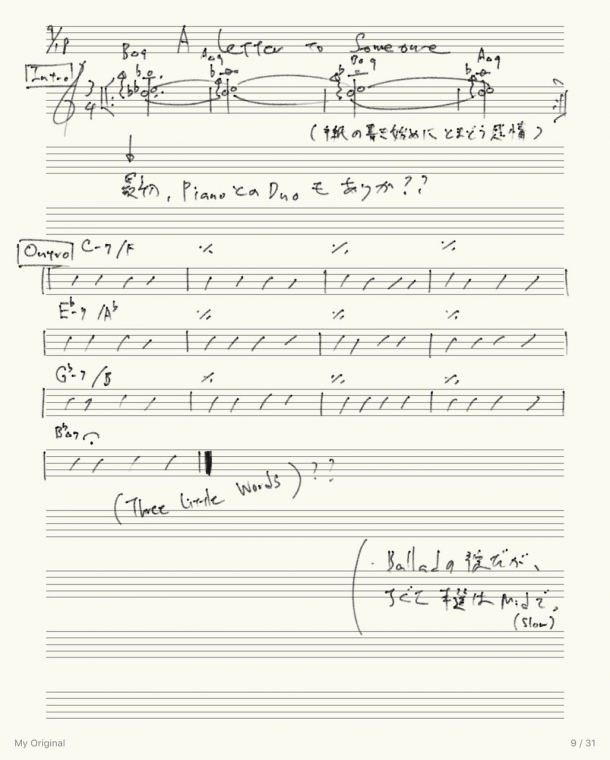 A Letter to Someone
Intro
3
4
(手紙の書き始めにとまどう感情)
最初、PianoとのDuoもありか??
Outro C-7/F ٪ ٪ ٪
E♭-7/A♭
G♭-7/B
B♭△7
(Three Little Words)??
・Balladの
(Slow)
My Original
9 / 31